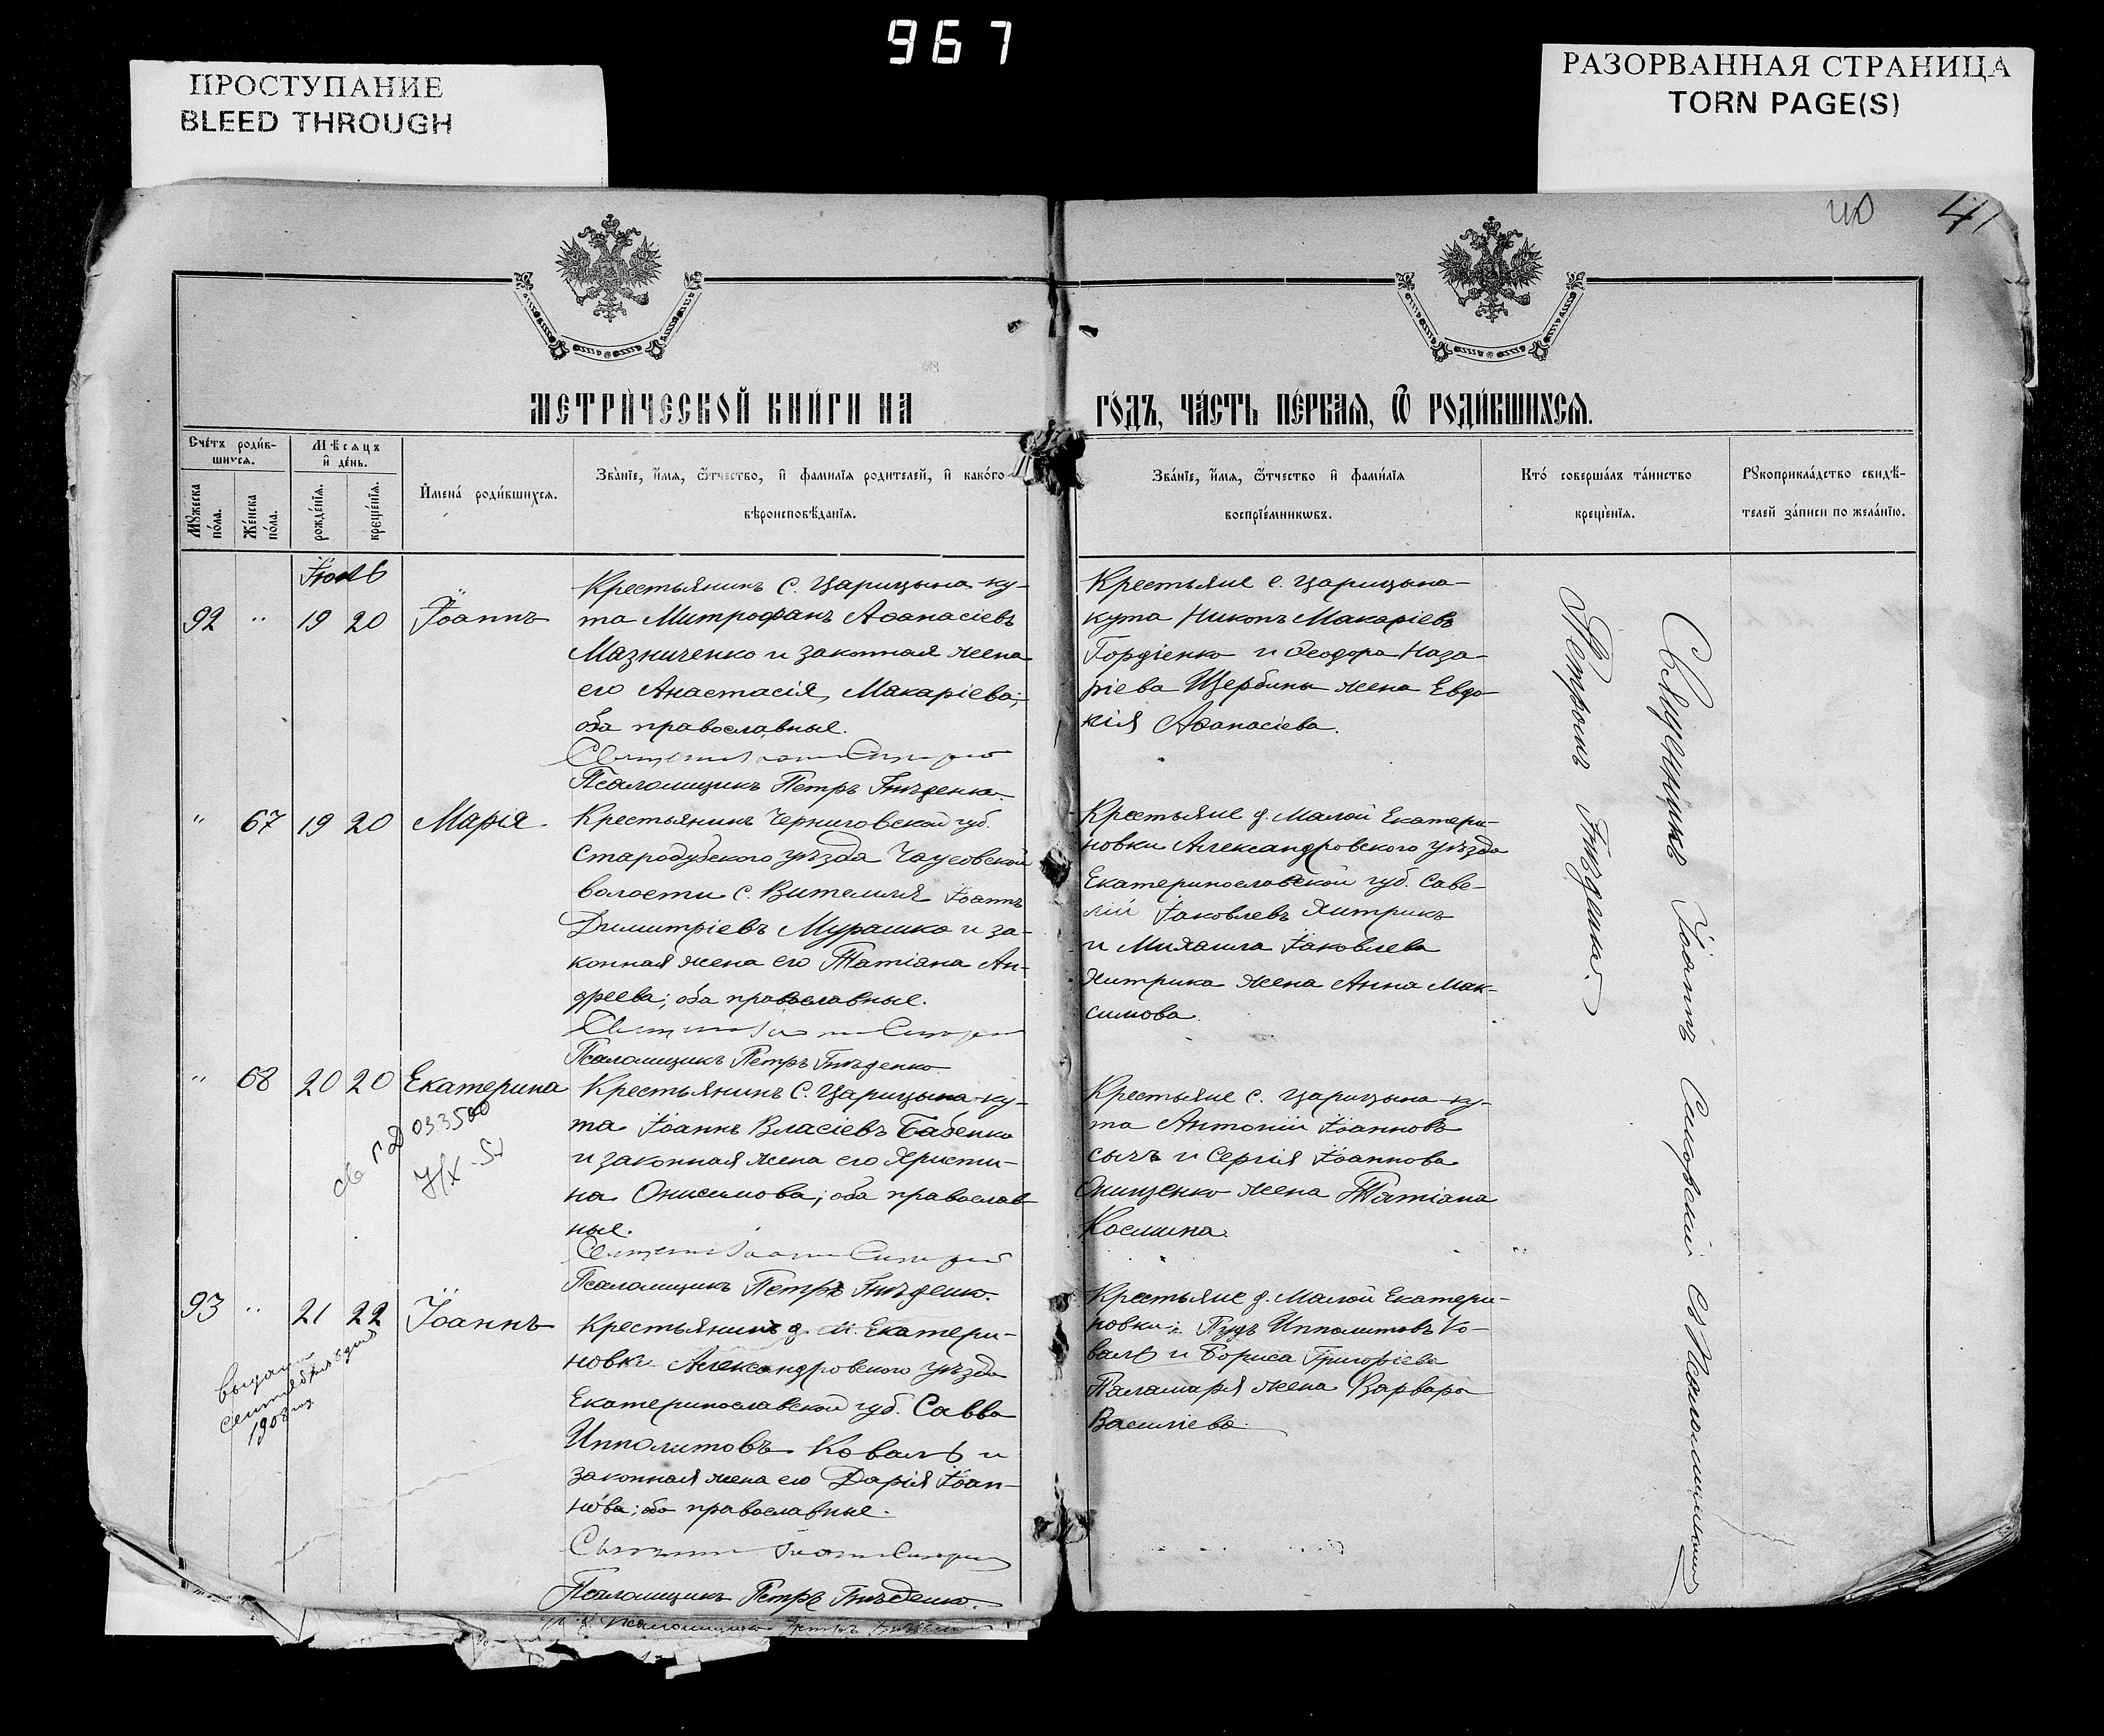 967
ПРОСТУПАНИЕ
BLEED THROUGH
РАЗОРВАННАЯ СТРАНИЦА
TORN PAGE(S)
40 41
МЕТРИ́ЧЕСКОЙ КНИ́ГИ НА
ГО́ДЪ, ЧА́СТЬ ПЕ́РВАЯ, Ѿ РОДИ́ВШИХСЯ.
Сче́тъ роди́в-
шихся.
Му́жеска по́ла.
Же́нска по́ла.
Мѣ́сяцъ
и де́нь.
рожде́нія.
креще́нія.
Имена́ роди́вшихся.
Зва́ніе, и́мя, ѻ́тчество, и фами́лія родителей, и како́го
вѣроисповѣ́данія.
Зва́ніе, и́мя, ѻ́тчество и фами́лія
воспрїе́мникѡвъ.
Кто́ соверша́лъ та́инство
креще́нія.
Рукоприкла́дство свидѣ́-
телей за́писи по жела́нію.
Іюль
92 " 19 20 Іоаннъ
Крестьянинъ с. Царицына-ку-
та Митрофанъ Аѳанасіевъ
Мазниченко и законная жена
его Анастасія Макаріева;
оба православные.
Псаломщикъ Петръ Гнѣденко.
Крестьяне с. Царицына-
кута Никонъ Макаріевъ
Гордіенко и Ѳеодора Наза-
ріева Щербины жена Евдо-
кія Аѳанасіева.
" 67 19 20 Марія
Крестьянинъ Черниговской губ.
Стародубского уѣзда Чаусовской
волости с. Витемля Іоаннъ
Димитріевъ Мурашко и за-
конная жена его Татіана Ан-
дреева; оба православные.
Псаломщикъ Петръ Гнѣденко
Крестьяне д. Малой Екатери-
новки Александровского уѣзда
Екатеринославской губ. Саве-
лій Іаковлевъ Хитрикъ
и Михаила Іаковлева
Хитрика жена Анна Мак-
симова.
" 68 20 20 Екатерина
033500
Крестьянинъ с. Царицына-ку-
та Іоаннъ Власіевъ Бабенко
и законная жена его Христи-
на Онисимова; оба православ-
ные.
Псаломщикъ Петръ Гнѣденко.
Крестьяне с. Царицына-ку-
та Антоній Іоанновъ
Сычъ и Сергія Іоаннова
Онищенко жена Татіана
Космина.
93 " 21 22 Іоаннъ
сентября
1908
Крестьянинъ д. М. Екатери-
новки Александровского уѣзда
Екатеринославской губ. Савва
Ипполитовъ Коваль и
законная жена его Дарія Іоан-
нова; оба православные.
Псаломщикъ Петръ Гнѣденко.
Крестьяне д. Малой Екатери-
новки: Пудъ Ипполитовъ Ко-
валь и Бориса Григоріева
Паламаря жена Варвара
Василіева.
Священникъ Іоаннъ съ Псаломщикомъ
Петромъ Гнѣденко.